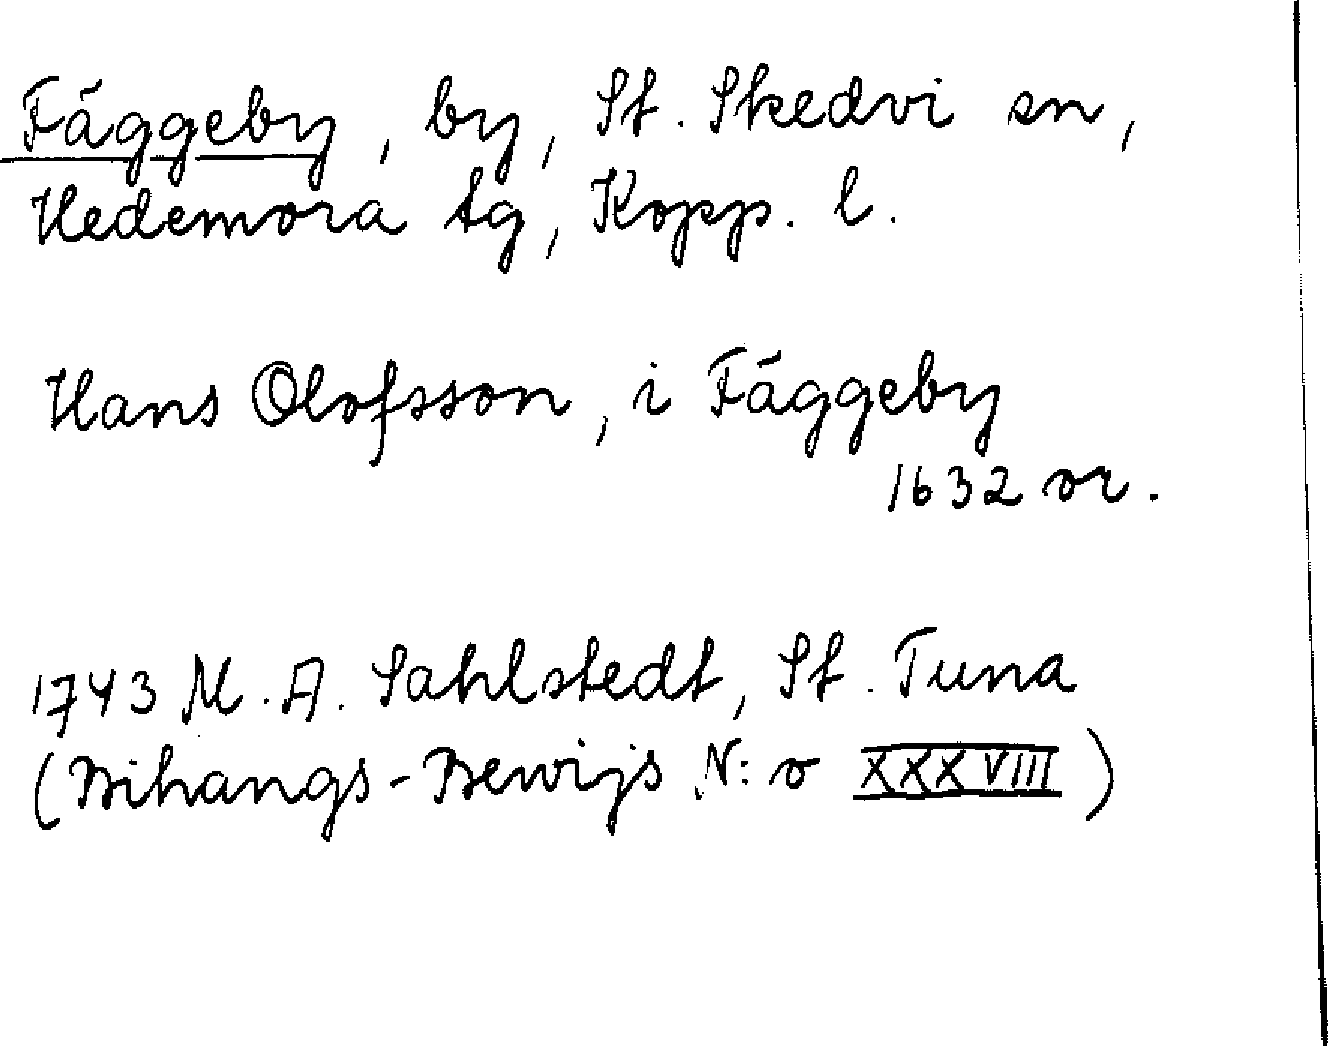 Fäggeby, by, St. Skedvi sn,
Hedemora tg, Kopp. l.
Hans Olofsson, i Fäggeby
1632 or.
1743 M. A. Sahlstedt, St. Tuna
(Bihangs-Bewijs N:o XXXVIII)